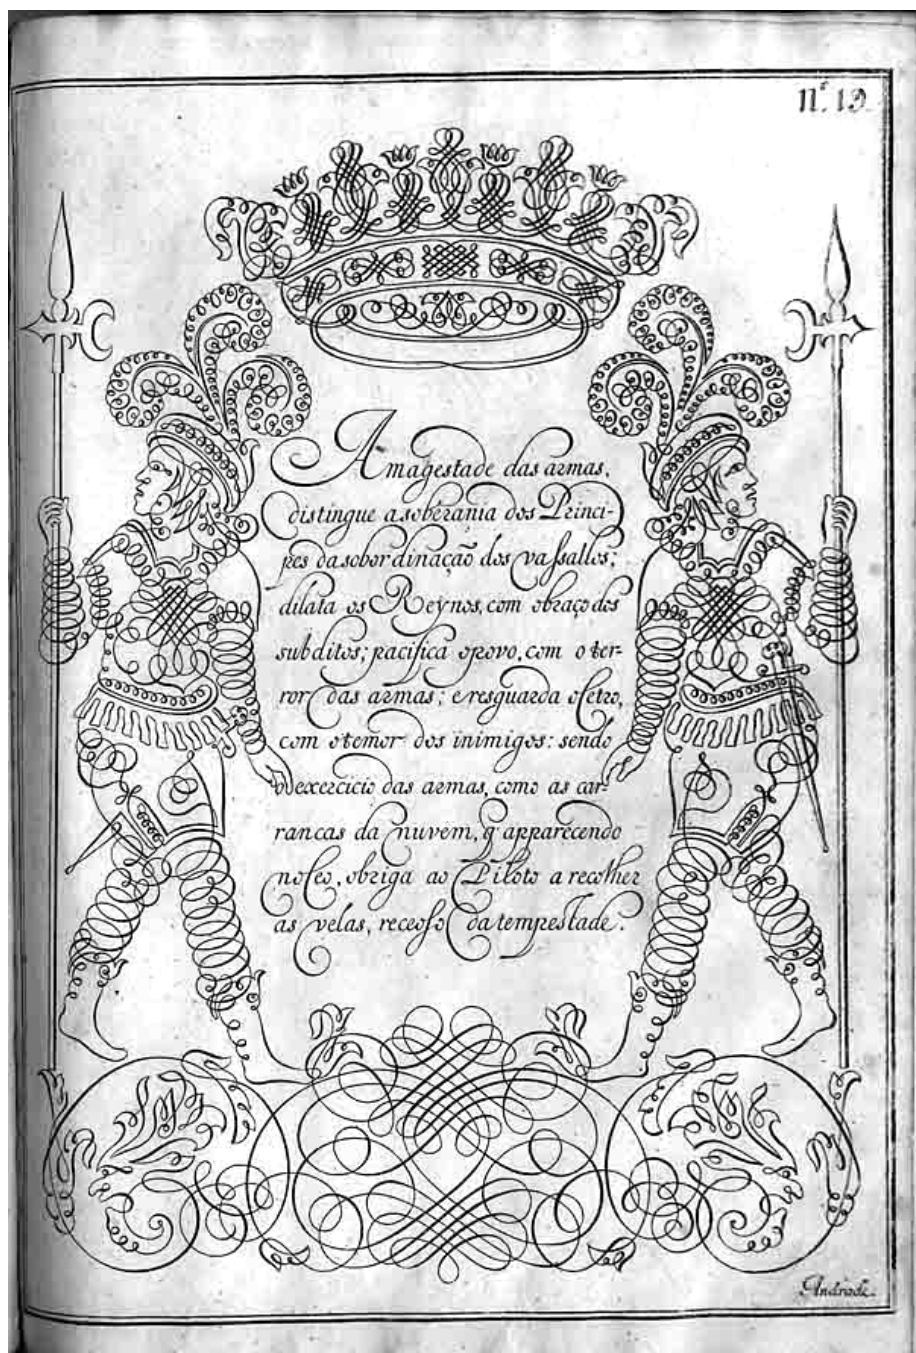 Nº. 19.
A magestade das armas,
distingue a soberania dos Princi-
pes da sobordinação dos vassallos;
dilata os Reynos, com o braço dos
subditos; pacifica o povo, com o ter-
ror das armas; e resguarda o Cetro,
com o temor dos inimigos: sendo
o exercicio das armas, como as car-
rancas da nuvem, q̃ apparecendo
no Ceo, obriga ao Piloto a recolher
as velas, receoso da tempestade.
Andrade.